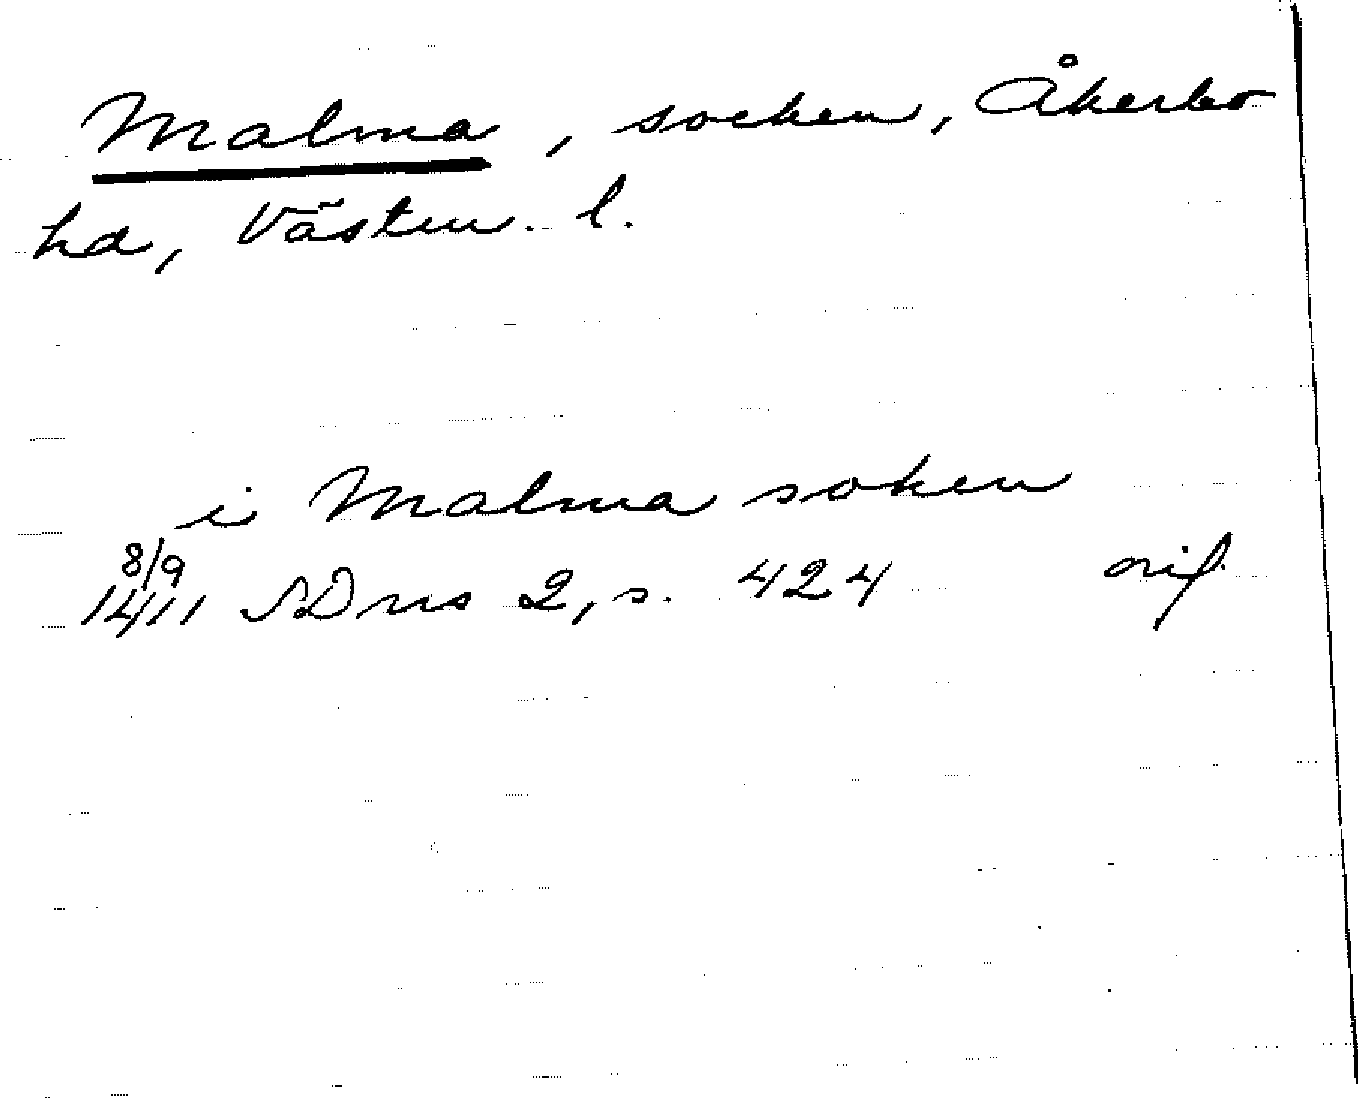 Malma, socken, Åkerbo
hd, Västm. l.
i Malma soken
8/9
1411 SDns 2, s. 424 orig.